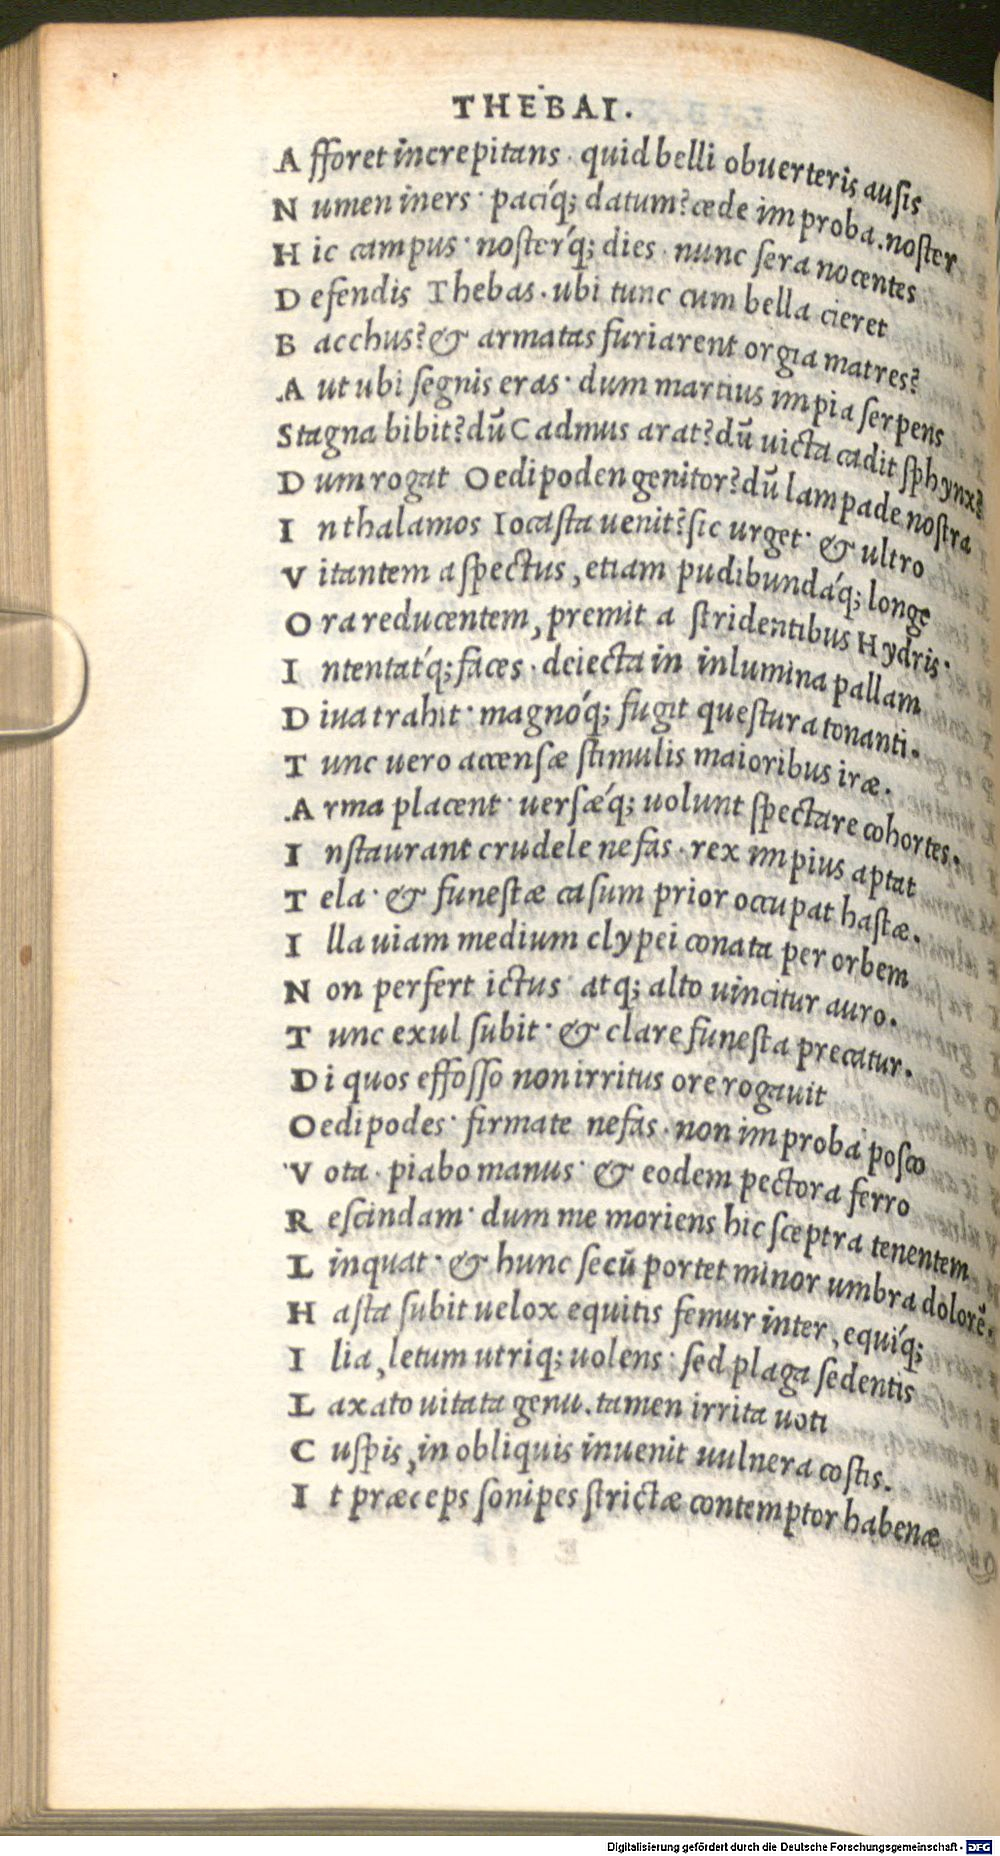 THEBAI.
A fforet increpitans · quid belli obuerteris ausis
N umen iners · pacíq; datum? cæde improba. noster
H ic campus · nosterq́; dies · nunc sera nocentes
D efendis Thebas · ubi tunc cum bella cieret
B acchus? & armatas furiarent orgia matres?
A ut ubi segnis eras · dum martius impia serpens
Stagna bibit? dū Cadmus arat? dū uicta cadit sphynx?
D um rogat Oedipoden genitor? dū lampade nostra
I n thalamos Iocasta uenit? sic urget · & ultro
V itantem aspectus, etiam pudibundáq; longe
O ra reducentem, premit a stridentibus Hydris·
I ntentat'q; faces · deiecta in inlumina pallam
D iua trahit · magnóq; fugit questura tonanti.
T unc uero accensæ stimulis maioribus iræ.
A rma placent · uersǽq; uolunt spectare cohortes.
I nstaurant crudele nefas · rex impius aptat
T ela · & funestæ casum prior occupat hastæ.
I lla uiam medium clypei conata per orbem
N on perfert ictus atq; alto uincitur auro.
T unc exul subit · & clare funesta precatur.
D i quos effosso non irritus ore rogauit
Oedipodes · firmate nefas · non improba posco
V ota · piabo manus · & eodem pectora ferro
R escindam · dum me moriens hic sceptra tenentem
L inquat · & hunc secū portet minor umbra dolorē.
H asta subit uelox equitis femur inter, equíq;
I lia, letum utriq; uolens · sed plaga sedentis
L axato uitata genu. tamen irrita uoti
C uspis, in obliquis inuenit uulnera costis.
I t præceps sonipes strictæ contemptor habenæ
Digitalisierung gefördert durch die Deutsche Forschungsgemeinschaft - DFG